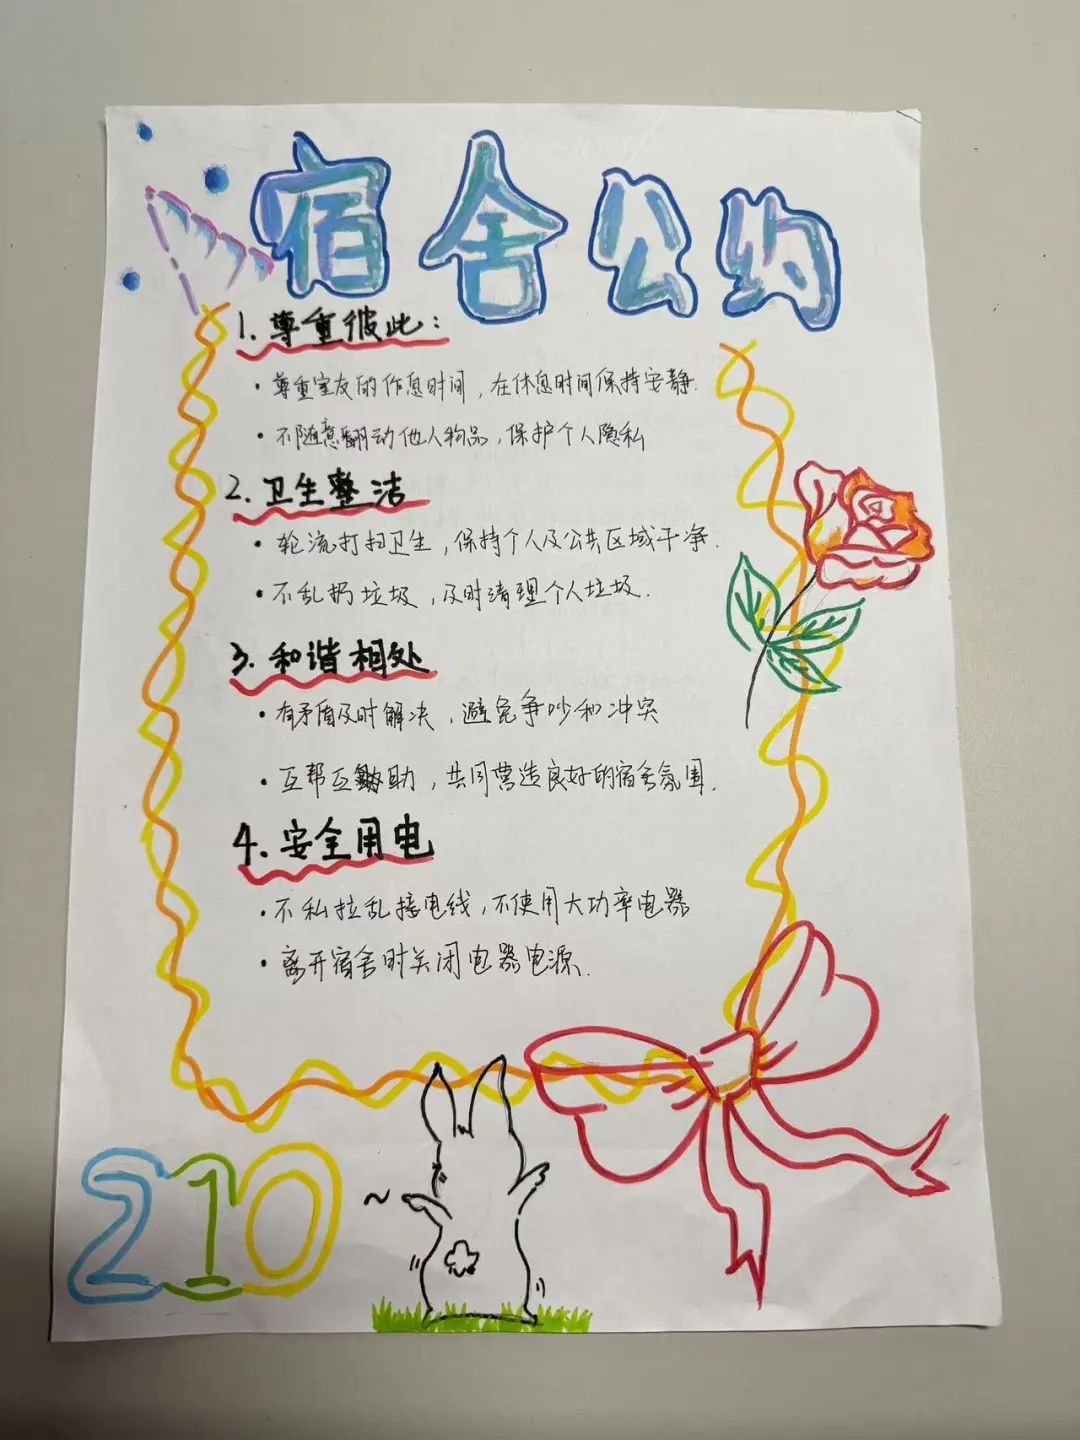 宿舍公约
1. 尊重彼此：
· 尊重室友的作息时间，在休息时间保持安静.
· 不随意翻动他人物品，保护个人隐私
2. 卫生整洁
· 轮流打扫卫生，保持个人及公共区域干净.
· 不乱扔垃圾，及时清理个人垃圾.
3. 和谐相处
· 有矛盾及时解决，避免争吵和冲突
· 互帮互助，共同营造良好的宿舍氛围.
4. 安全用电
· 不私拉乱接电线，不使用大功率电器
· 离开宿舍时关闭电器电源.
210